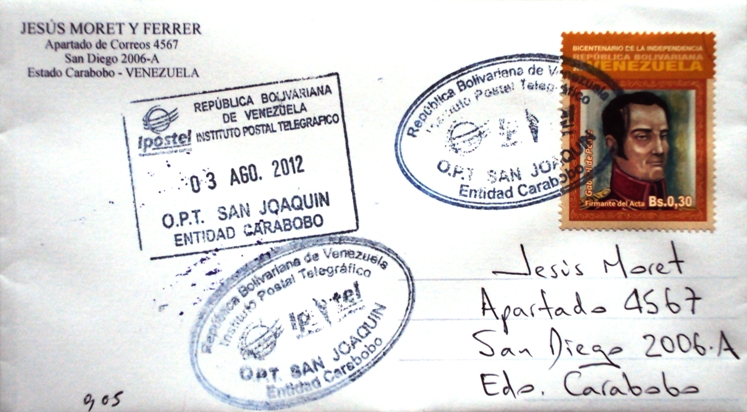 JESÚS MORET Y FERRER
Apartado de Correos 4567
San Diego 2006-A
Estado Carabobo - VENEZUELA
REPÚBLICA BOLIVARIANA
DE VENEZUELA
Ipostel INSTITUTO POSTAL TELEGRAFICO
03 AGO. 2012
O.P.T. SAN JOAQUIN
ENTIDAD CARABOBO
República Bolivariana de Venezuela
Instituto Postal Telegráfico
O.P.T. SAN JOAQUIN
Entidad Carabobo
BICENTENARIO DE LA INDEPENDENCIA
REPÚBLICA BOLIVARIANA
VENEZUELA
Firmante del Acta Bs.0,30
República Bolivariana de Venezuela
Instituto Postal Telegráfico
Ipostel
O.P.T. SAN JOAQUIN
Entidad Carabobo
Jesús Moret
Apartado 4567
San Diego 2006-A
Edo. Carabobo
0,05